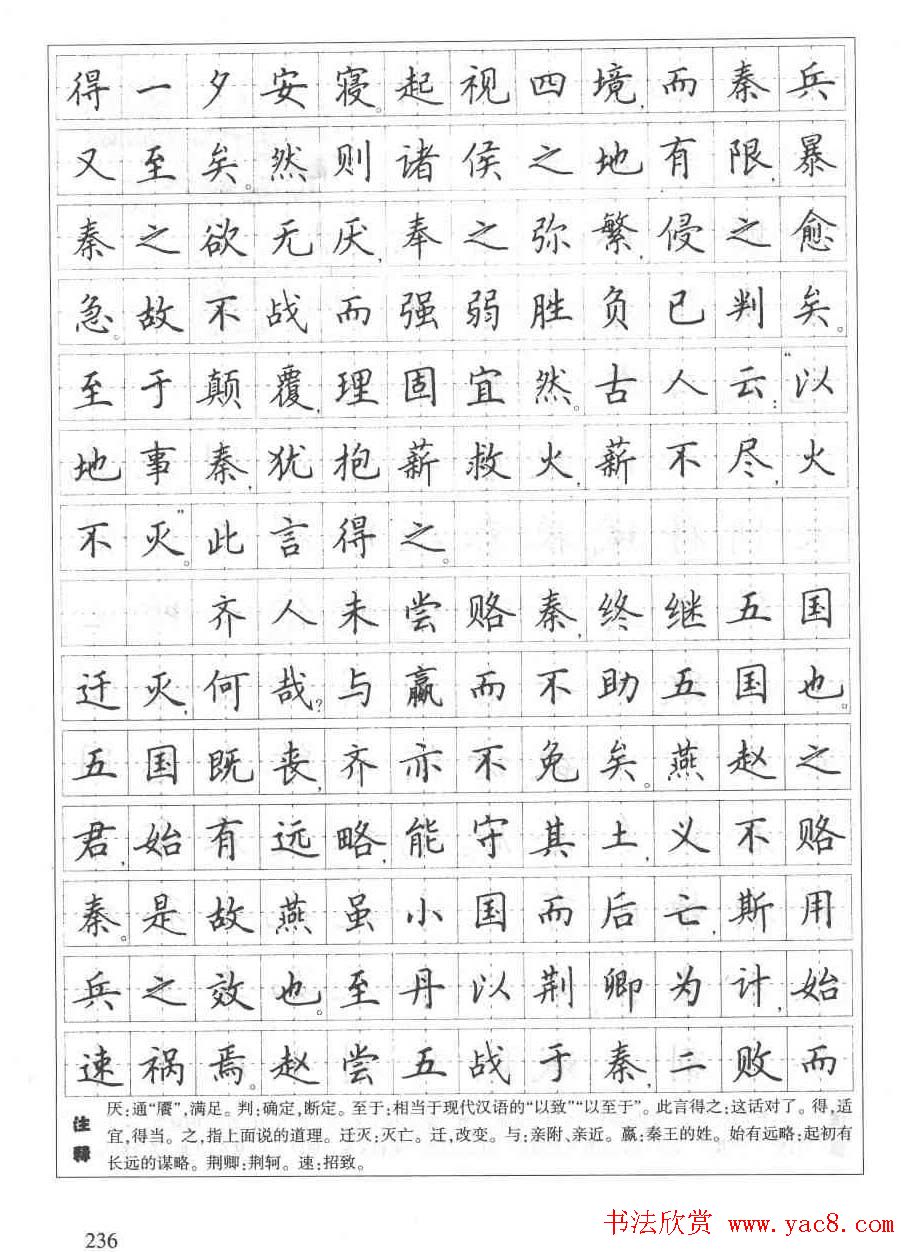 得一夕安寝。起视四境,而秦兵
又至矣。然则诸侯之地有限,暴
秦之欲无厌,奉之弥繁,侵之愈
急。故不战而强弱胜负已判矣。
至于颠覆,理固宜然。古人云:“以
地事秦,犹抱薪救火,薪不尽,火
不灭。”此言得之。
齐人未尝赂秦,终继五国
迁灭,何哉?与嬴而不助五国也。
五国既丧,齐亦不免矣。燕赵之
君,始有远略,能守其土,义不赂
秦。是故燕虽小国而后亡,斯用
兵之效也。至丹以荆卿为计,始
速祸焉。赵尝五战于秦,二败而
注释
厌:通“餍”,满足。判:确定,断定。至于:相当于现代汉语的“以致”“以至于”。此言得之:这话对了。得,适
宜,得当。之,指上面说的道理。迁灭:灭亡。迁,改变。与:亲附、亲近。嬴:秦王的姓。始有远略:起初有
长远的谋略。荆卿:荆轲。速:招致。
236
书法欣赏 www.yac8.com